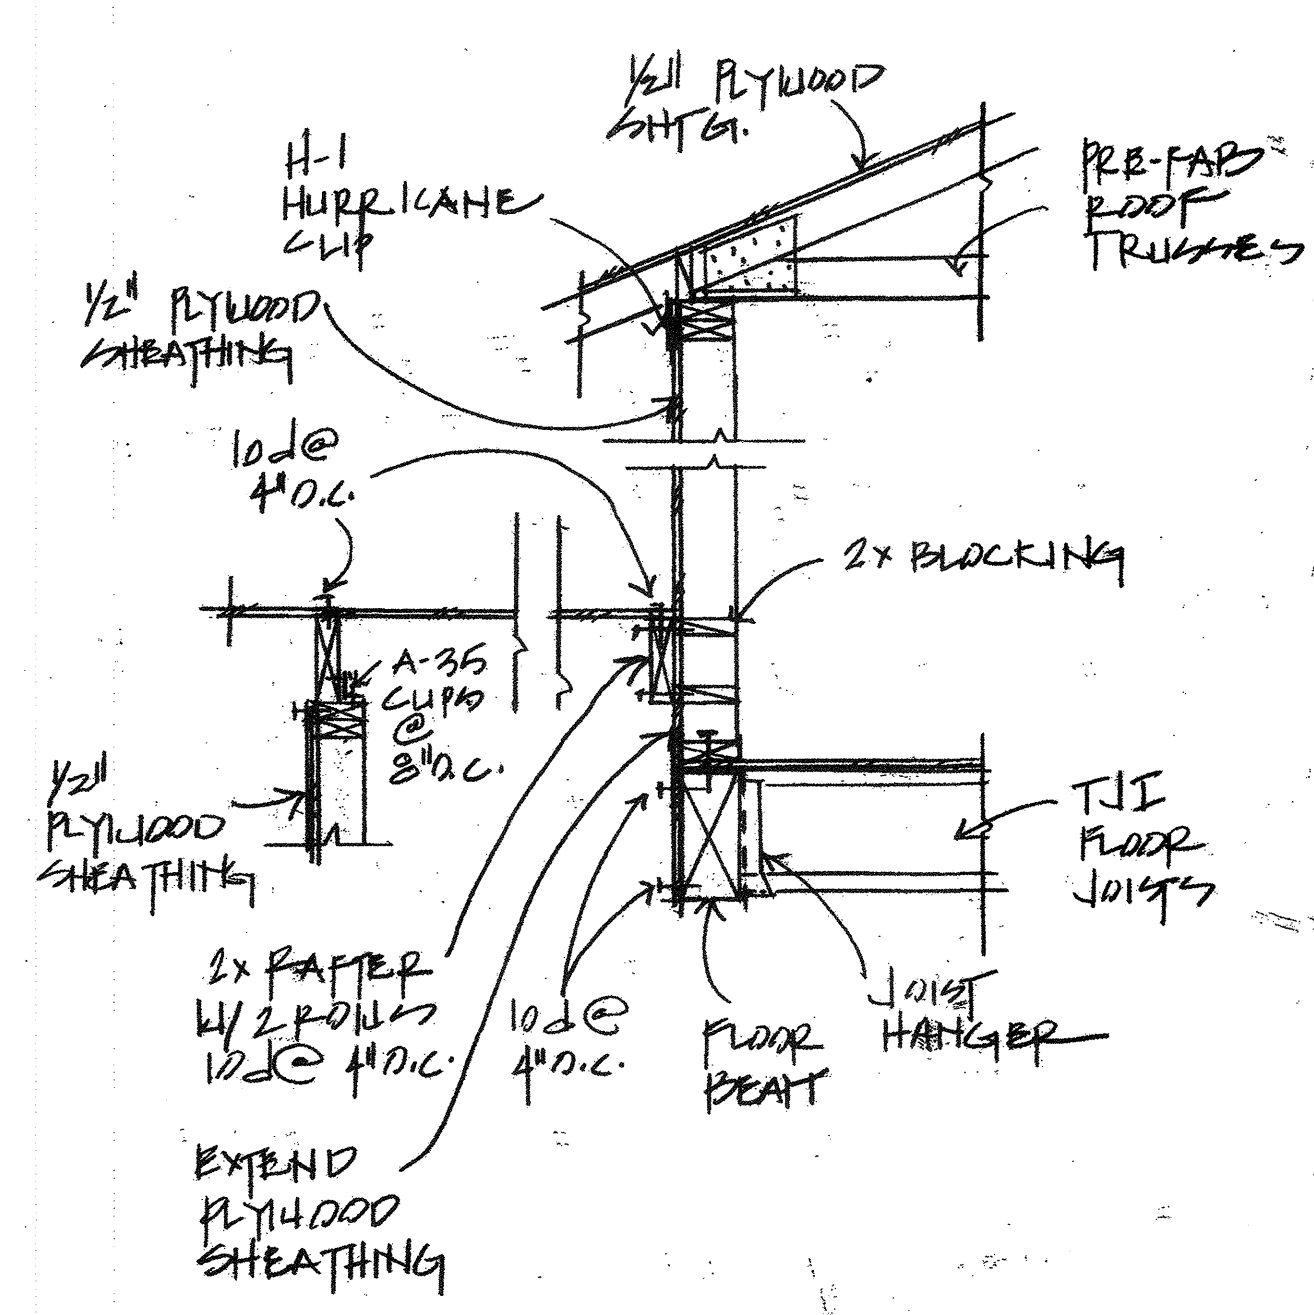 1/2" PLYWOOD
SHTG.
H-1
HURRICANE
CLIP
PRE-FAB
ROOF
TRUSSES
1/2" PLYWOOD
SHEATHING
10d@
4"O.C.
2x BLOCKING
A-35
CLIPS
@
8"O.C.
1/2"
PLYWOOD
SHEATHING
TJI
FLOOR
JOISTS
2x RAFTER
W/2 ROWS
10d@ 4"O.C.
10d@
4"O.C.
FLOOR
BEAM
JOIST
HANGER
EXTEND
PLYWOOD
SHEATHING